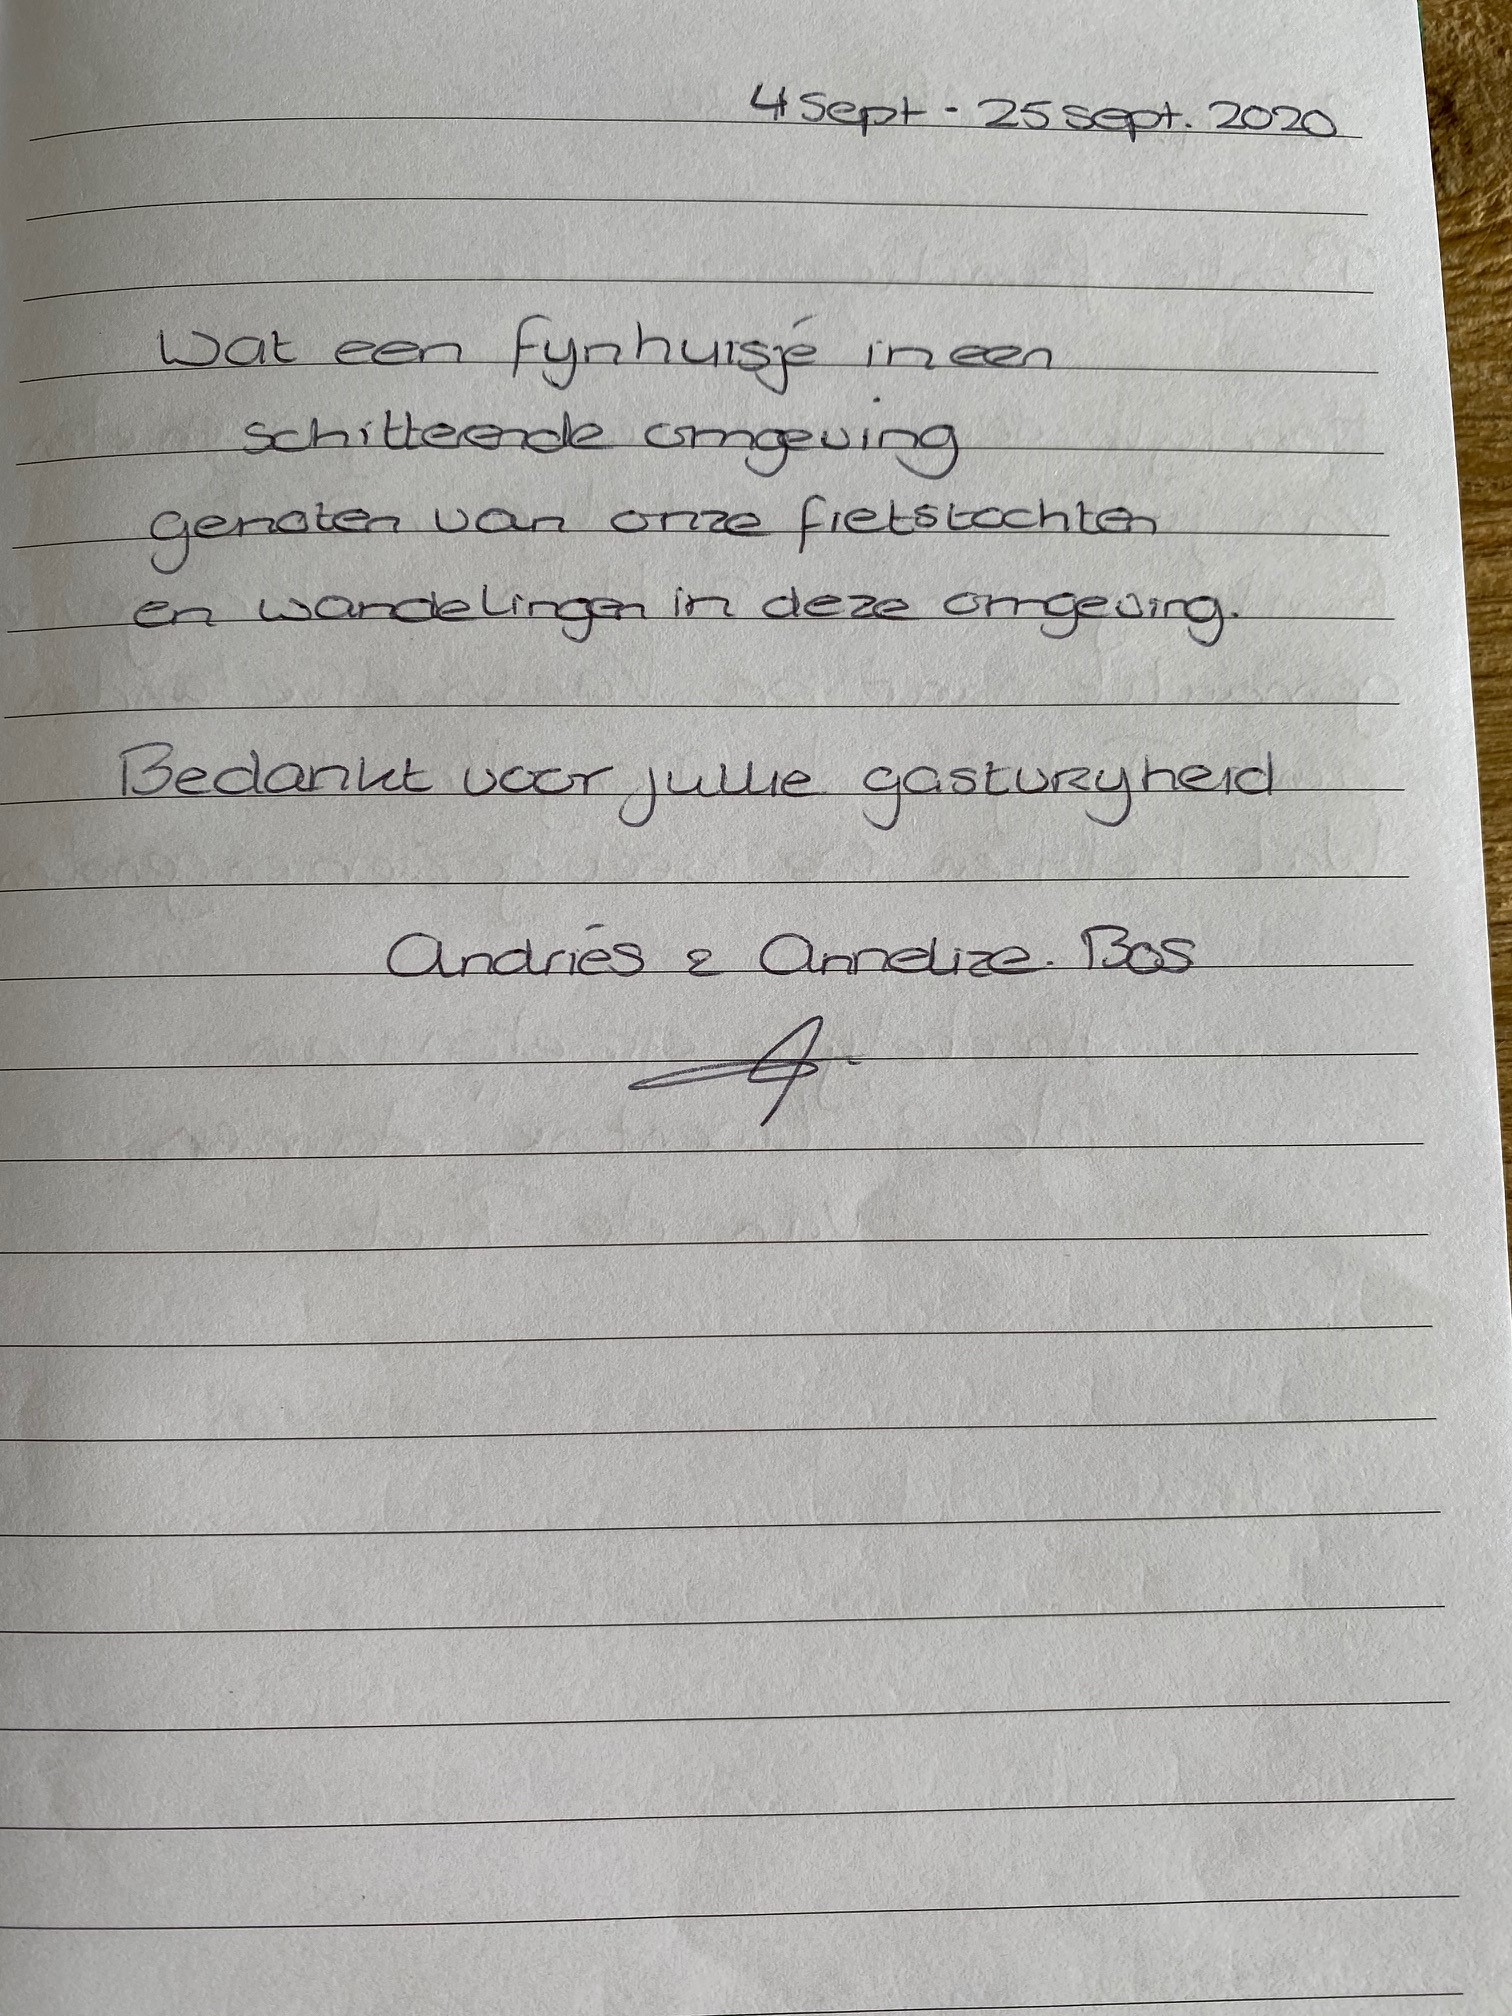 4 Sept - 25 sept. 2020
Wat een fynhuisje in een
schitterende omgeving
genoten van onze fietstochten
en wandelingen in deze omgeving.
Bedankt voor jullie gastvryheid
Andries & Annelize. Bos